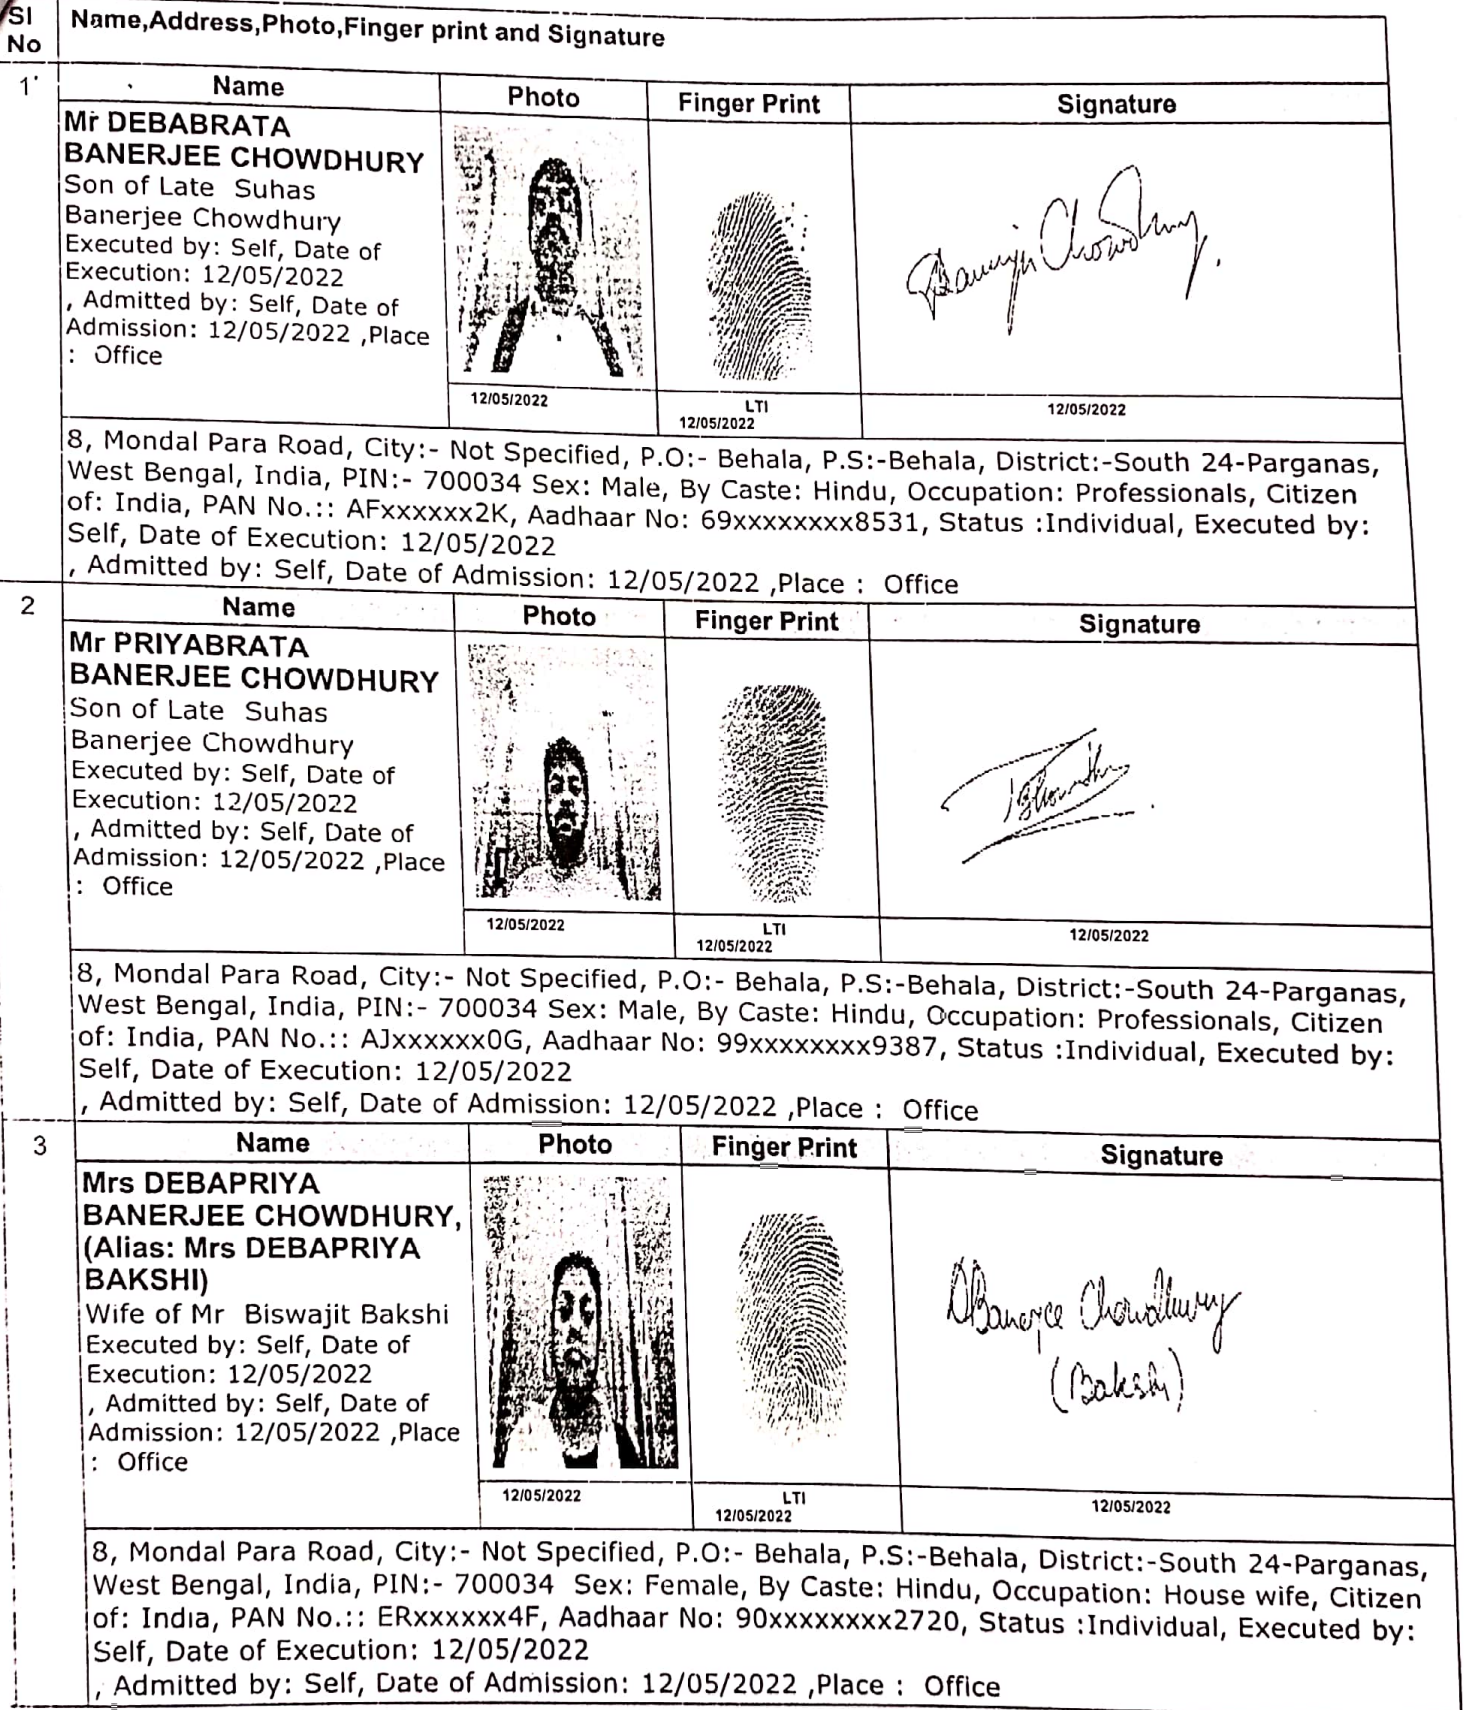 Sl
No
Name,Address,Photo,Finger print and Signature
1
Name
Photo
Finger Print
Signature
Mr DEBABRATA
BANERJEE CHOWDHURY
Son of Late Suhas
Banerjee Chowdhury
Executed by: Self, Date of
Execution: 12/05/2022
, Admitted by: Self, Date of
Admission: 12/05/2022 ,Place
: Office
Chowdhury
12/05/2022
LTI
12/05/2022
12/05/2022
8, Mondal Para Road, City:- Not Specified, P.O:- Behala, P.S:-Behala, District:-South 24-Parganas,
West Bengal, India, PIN:- 700034 Sex: Male, By Caste: Hindu, Occupation: Professionals, Citizen
of: India, PAN No.:: AFxxxxxx2K, Aadhaar No: 69xxxxxxxx8531, Status :Individual, Executed by:
Self, Date of Execution: 12/05/2022
, Admitted by: Self, Date of Admission: 12/05/2022 ,Place : Office
2
Name
Photo
Finger Print
Signature
Mr PRIYABRATA
BANERJEE CHOWDHURY
Son of Late Suhas
Banerjee Chowdhury
Executed by: Self, Date of
Execution: 12/05/2022
, Admitted by: Self, Date of
Admission: 12/05/2022 ,Place
: Office
12/05/2022
LTI
12/05/2022
12/05/2022
8, Mondal Para Road, City:- Not Specified, P.O:- Behala, P.S:-Behala, District:-South 24-Parganas,
West Bengal, India, PIN:- 700034 Sex: Male, By Caste: Hindu, Occupation: Professionals, Citizen
of: India, PAN No.:: AJxxxxxx0G, Aadhaar No: 99xxxxxxxx9387, Status :Individual, Executed by:
Self, Date of Execution: 12/05/2022
, Admitted by: Self, Date of Admission: 12/05/2022 ,Place : Office
3
Name
Photo
Finger Print
Signature
Mrs DEBAPRIYA
BANERJEE CHOWDHURY,
(Alias: Mrs DEBAPRIYA
BAKSHI)
Wife of Mr Biswajit Bakshi
Executed by: Self, Date of
Execution: 12/05/2022
, Admitted by: Self, Date of
Admission: 12/05/2022 ,Place
: Office
DBanerjee Chowdhury
(Bakshi)
12/05/2022
LTI
12/05/2022
12/05/2022
8, Mondal Para Road, City:- Not Specified, P.O:- Behala, P.S:-Behala, District:-South 24-Parganas,
West Bengal, India, PIN:- 700034 Sex: Female, By Caste: Hindu, Occupation: House wife, Citizen
of: India, PAN No.:: ERxxxxxx4F, Aadhaar No: 90xxxxxxxx2720, Status :Individual, Executed by:
Self, Date of Execution: 12/05/2022
, Admitted by: Self, Date of Admission: 12/05/2022 ,Place : Office